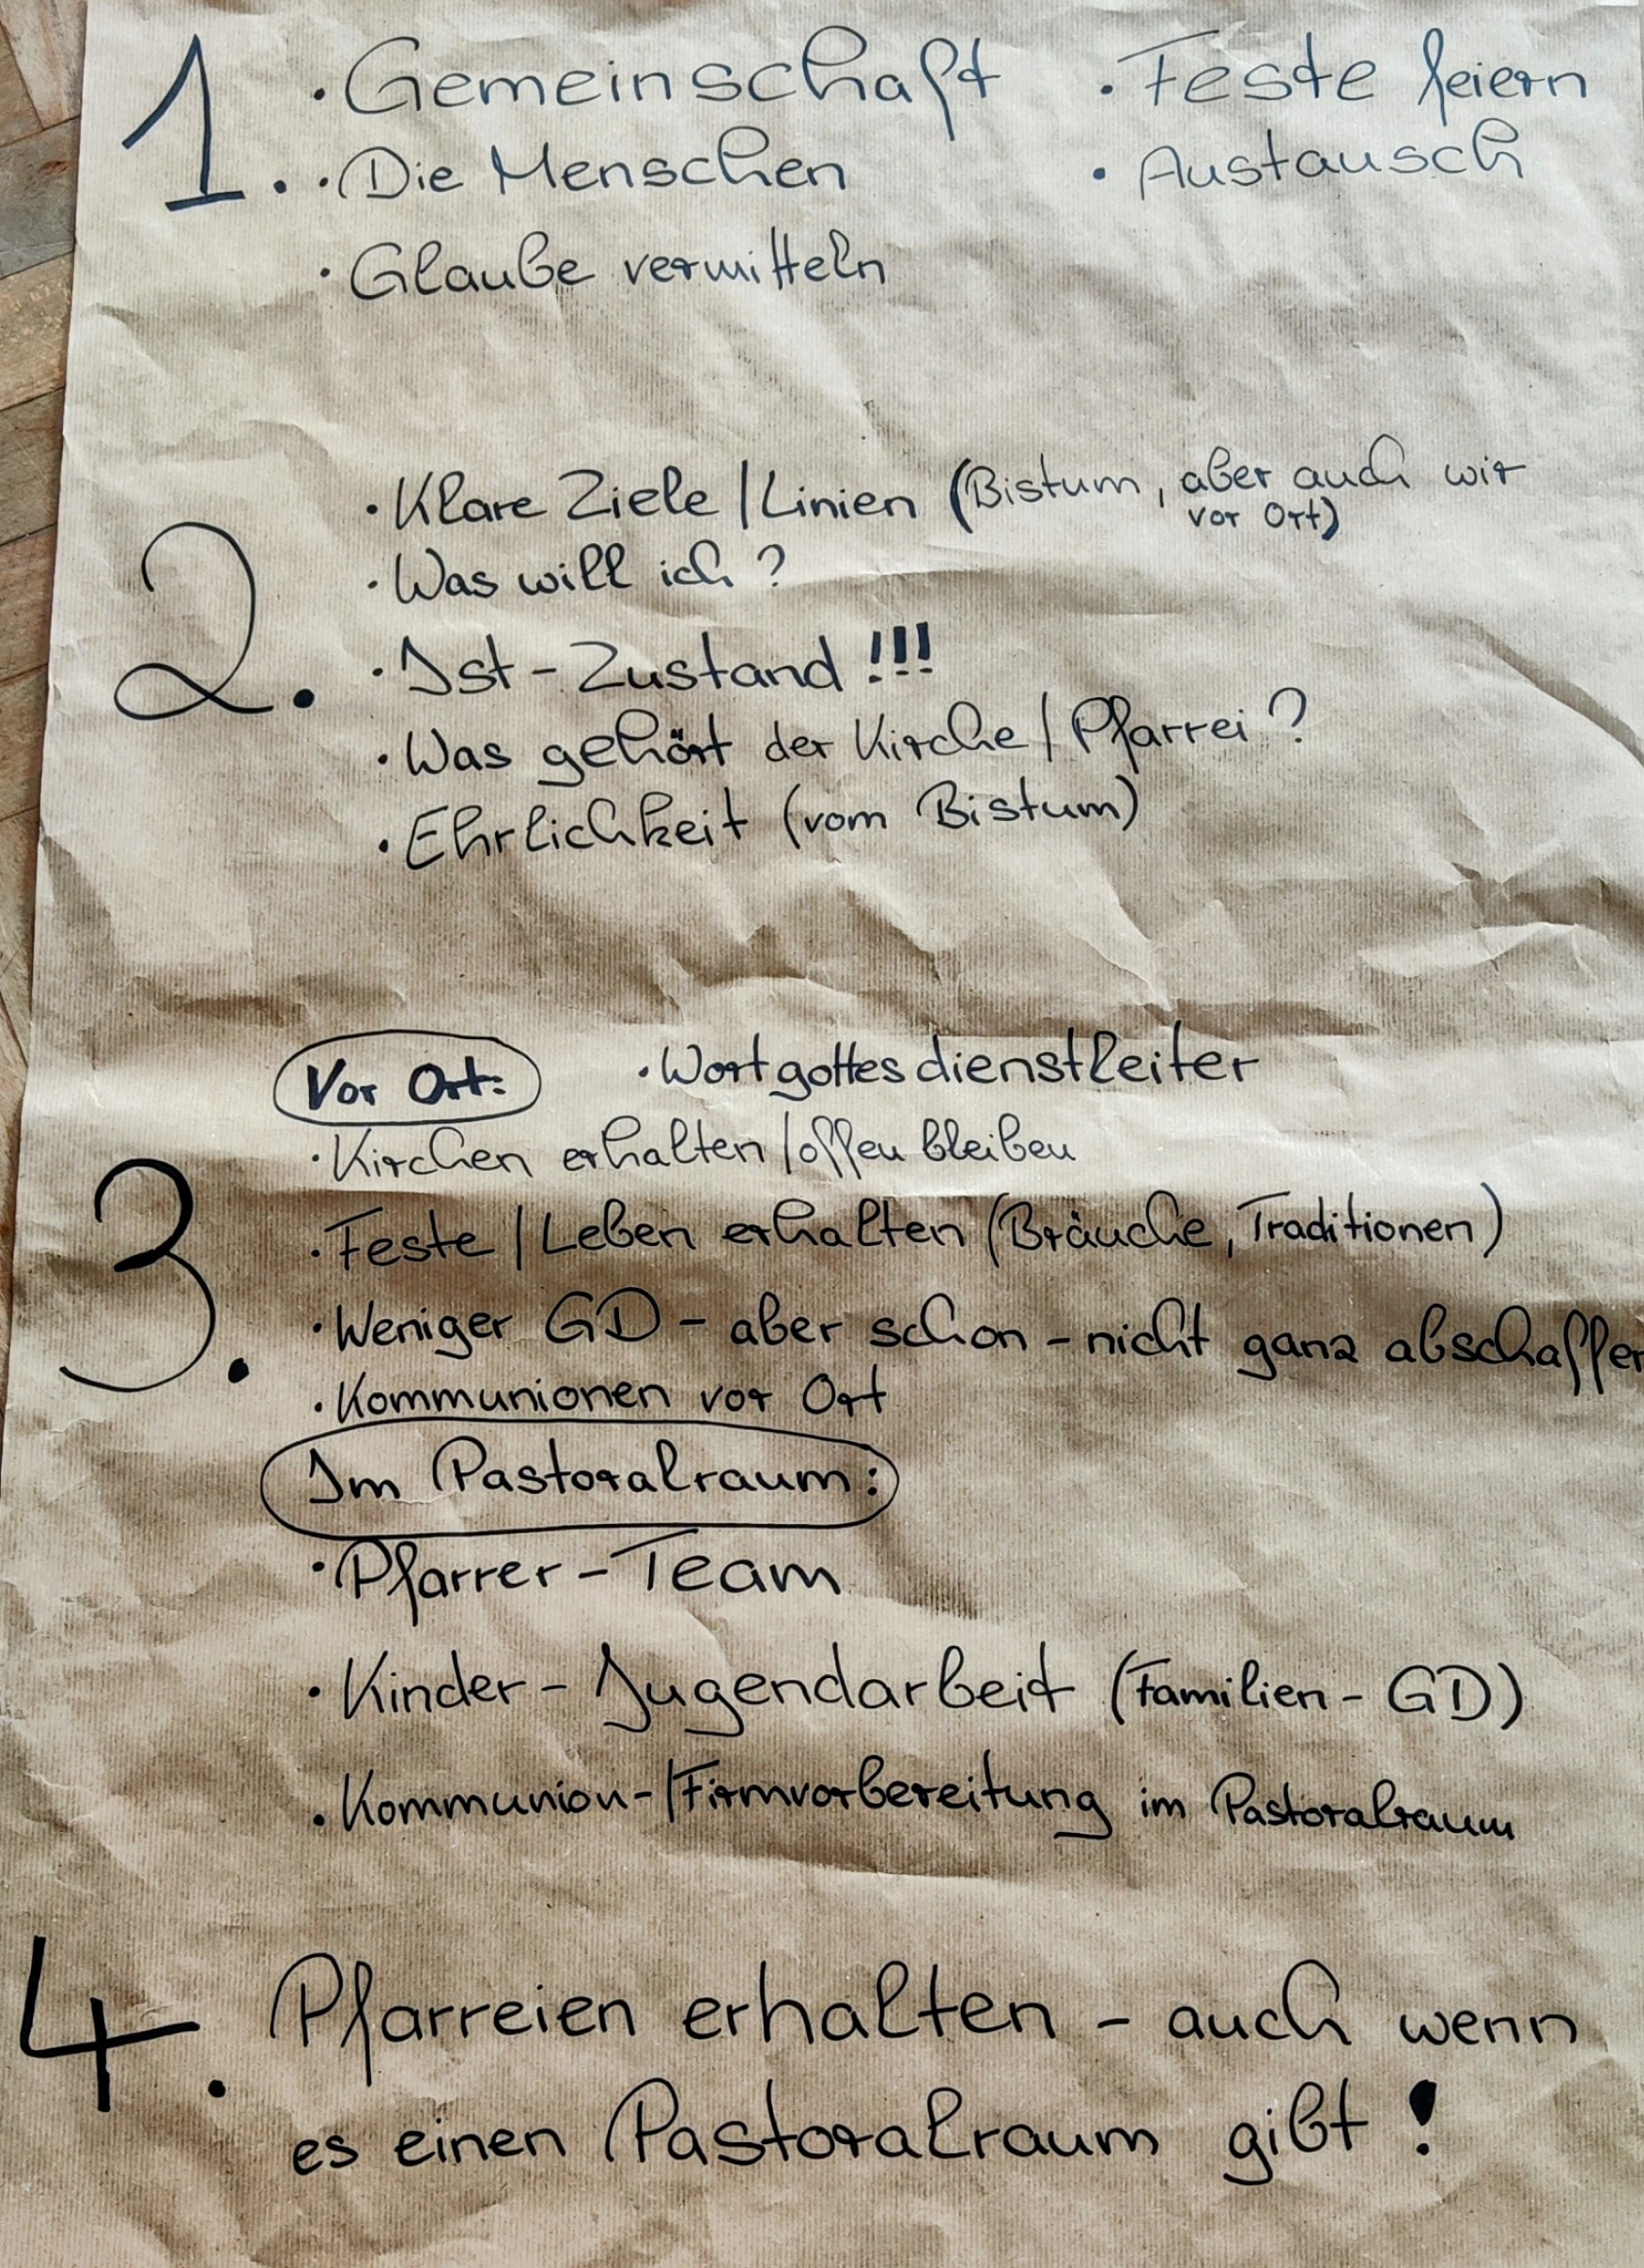 1. · Gemeinschaft · Feste feiern
· Die Menschen · Austausch
· Glaube vermitteln
2. · Klare Ziele / Linien (Bistum, aber auch wir
vor Ort)
· Was will ich?
· Ist-Zustand!!!
· Was gehört der Kirche / Pfarrei?
· Ehrlichkeit (vom Bistum)
3. Vor Ort: · Wortgottesdienstleiter
· Kirchen erhalten / offen bleiben
· Feste / Leben erhalten (Bräuche, Traditionen)
· Weniger GD - aber schon - nicht ganz abschaffen
· Kommunionen vor Ort
Im Pastoralraum:
· Pfarrer-Team
· Kinder- Jugendarbeit (Familien-GD)
· Kommunion-/Firmvorbereitung im Pastoralraum
4. Pfarreien erhalten - auch wenn
es einen Pastoralraum gibt!